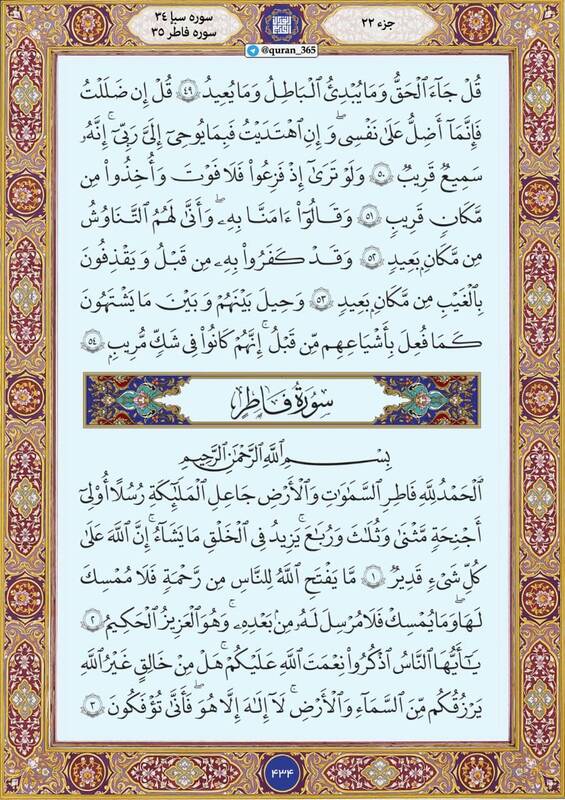 سوره سبإ ۳۴
سوره فاطر ۳۵
جزء ۲۲
@quran_365
قُلْ جَآءَ ٱلْحَقُّ وَمَا يُبْدِئُ ٱلْبَاطِلُ وَمَا يُعِيدُ ۴۹ قُلْ إِن ضَلَلْتُ
فَإِنَّمَآ أَضِلُّ عَلَىٰ نَفْسِى ۖ وَإِنِ ٱهْتَدَيْتُ فَبِمَا يُوحِىٓ إِلَىَّ رَبِّىٓ ۚ إِنَّهُۥ
سَمِيعٌ قَرِيبٌ ۵۰ وَلَوْ تَرَىٰٓ إِذْ فَزِعُوا۟ فَلَا فَوْتَ وَأُخِذُوا۟ مِن
مَّكَانٍ قَرِيبٍ ۵۱ وَقَالُوٓا۟ ءَامَنَّا بِهِۦ وَأَنَّىٰ لَهُمُ ٱلتَّنَاوُشُ
مِن مَّكَانٍۭ بَعِيدٍ ۵۲ وَقَدْ كَفَرُوا۟ بِهِۦ مِن قَبْلُ ۖ وَيَقْذِفُونَ
بِٱلْغَيْبِ مِن مَّكَانٍۭ بَعِيدٍ ۵۳ وَحِيلَ بَيْنَهُمْ وَبَيْنَ مَا يَشْتَهُونَ
كَمَا فُعِلَ بِأَشْيَاعِهِم مِّن قَبْلُ ۚ إِنَّهُمْ كَانُوا۟ فِى شَكٍّ مُّرِيبٍۭ ۵۴
سُورَةُ فَاطِرٍ
بِسْمِ ٱللَّهِ ٱلرَّحْمَٰنِ ٱلرَّحِيمِ
ٱلْحَمْدُ لِلَّهِ فَاطِرِ ٱلسَّمَٰوَٰتِ وَٱلْأَرْضِ جَاعِلِ ٱلْمَلَٰٓئِكَةِ رُسُلًا أُو۟لِىٓ
أَجْنِحَةٍ مَّثْنَىٰ وَثُلَٰثَ وَرُبَٰعَ ۚ يَزِيدُ فِى ٱلْخَلْقِ مَا يَشَآءُ ۚ إِنَّ ٱللَّهَ عَلَىٰ
كُلِّ شَىْءٍ قَدِيرٌ ۱ مَّا يَفْتَحِ ٱللَّهُ لِلنَّاسِ مِن رَّحْمَةٍ فَلَا مُمْسِكَ
لَهَا ۖ وَمَا يُمْسِكْ فَلَا مُرْسِلَ لَهُۥ مِنۢ بَعْدِهِۦ ۚ وَهُوَ ٱلْعَزِيزُ ٱلْحَكِيمُ ۲
يَٰٓأَيُّهَا ٱلنَّاسُ ٱذْكُرُوا۟ نِعْمَتَ ٱللَّهِ عَلَيْكُمْ ۚ هَلْ مِنْ خَٰلِقٍ غَيْرُ ٱللَّهِ
يَرْزُقُكُم مِّنَ ٱلسَّمَآءِ وَٱلْأَرْضِ ۚ لَآ إِلَٰهَ إِلَّا هُوَ ۖ فَأَنَّىٰ تُؤْفَكُونَ ۳
۴۳۴